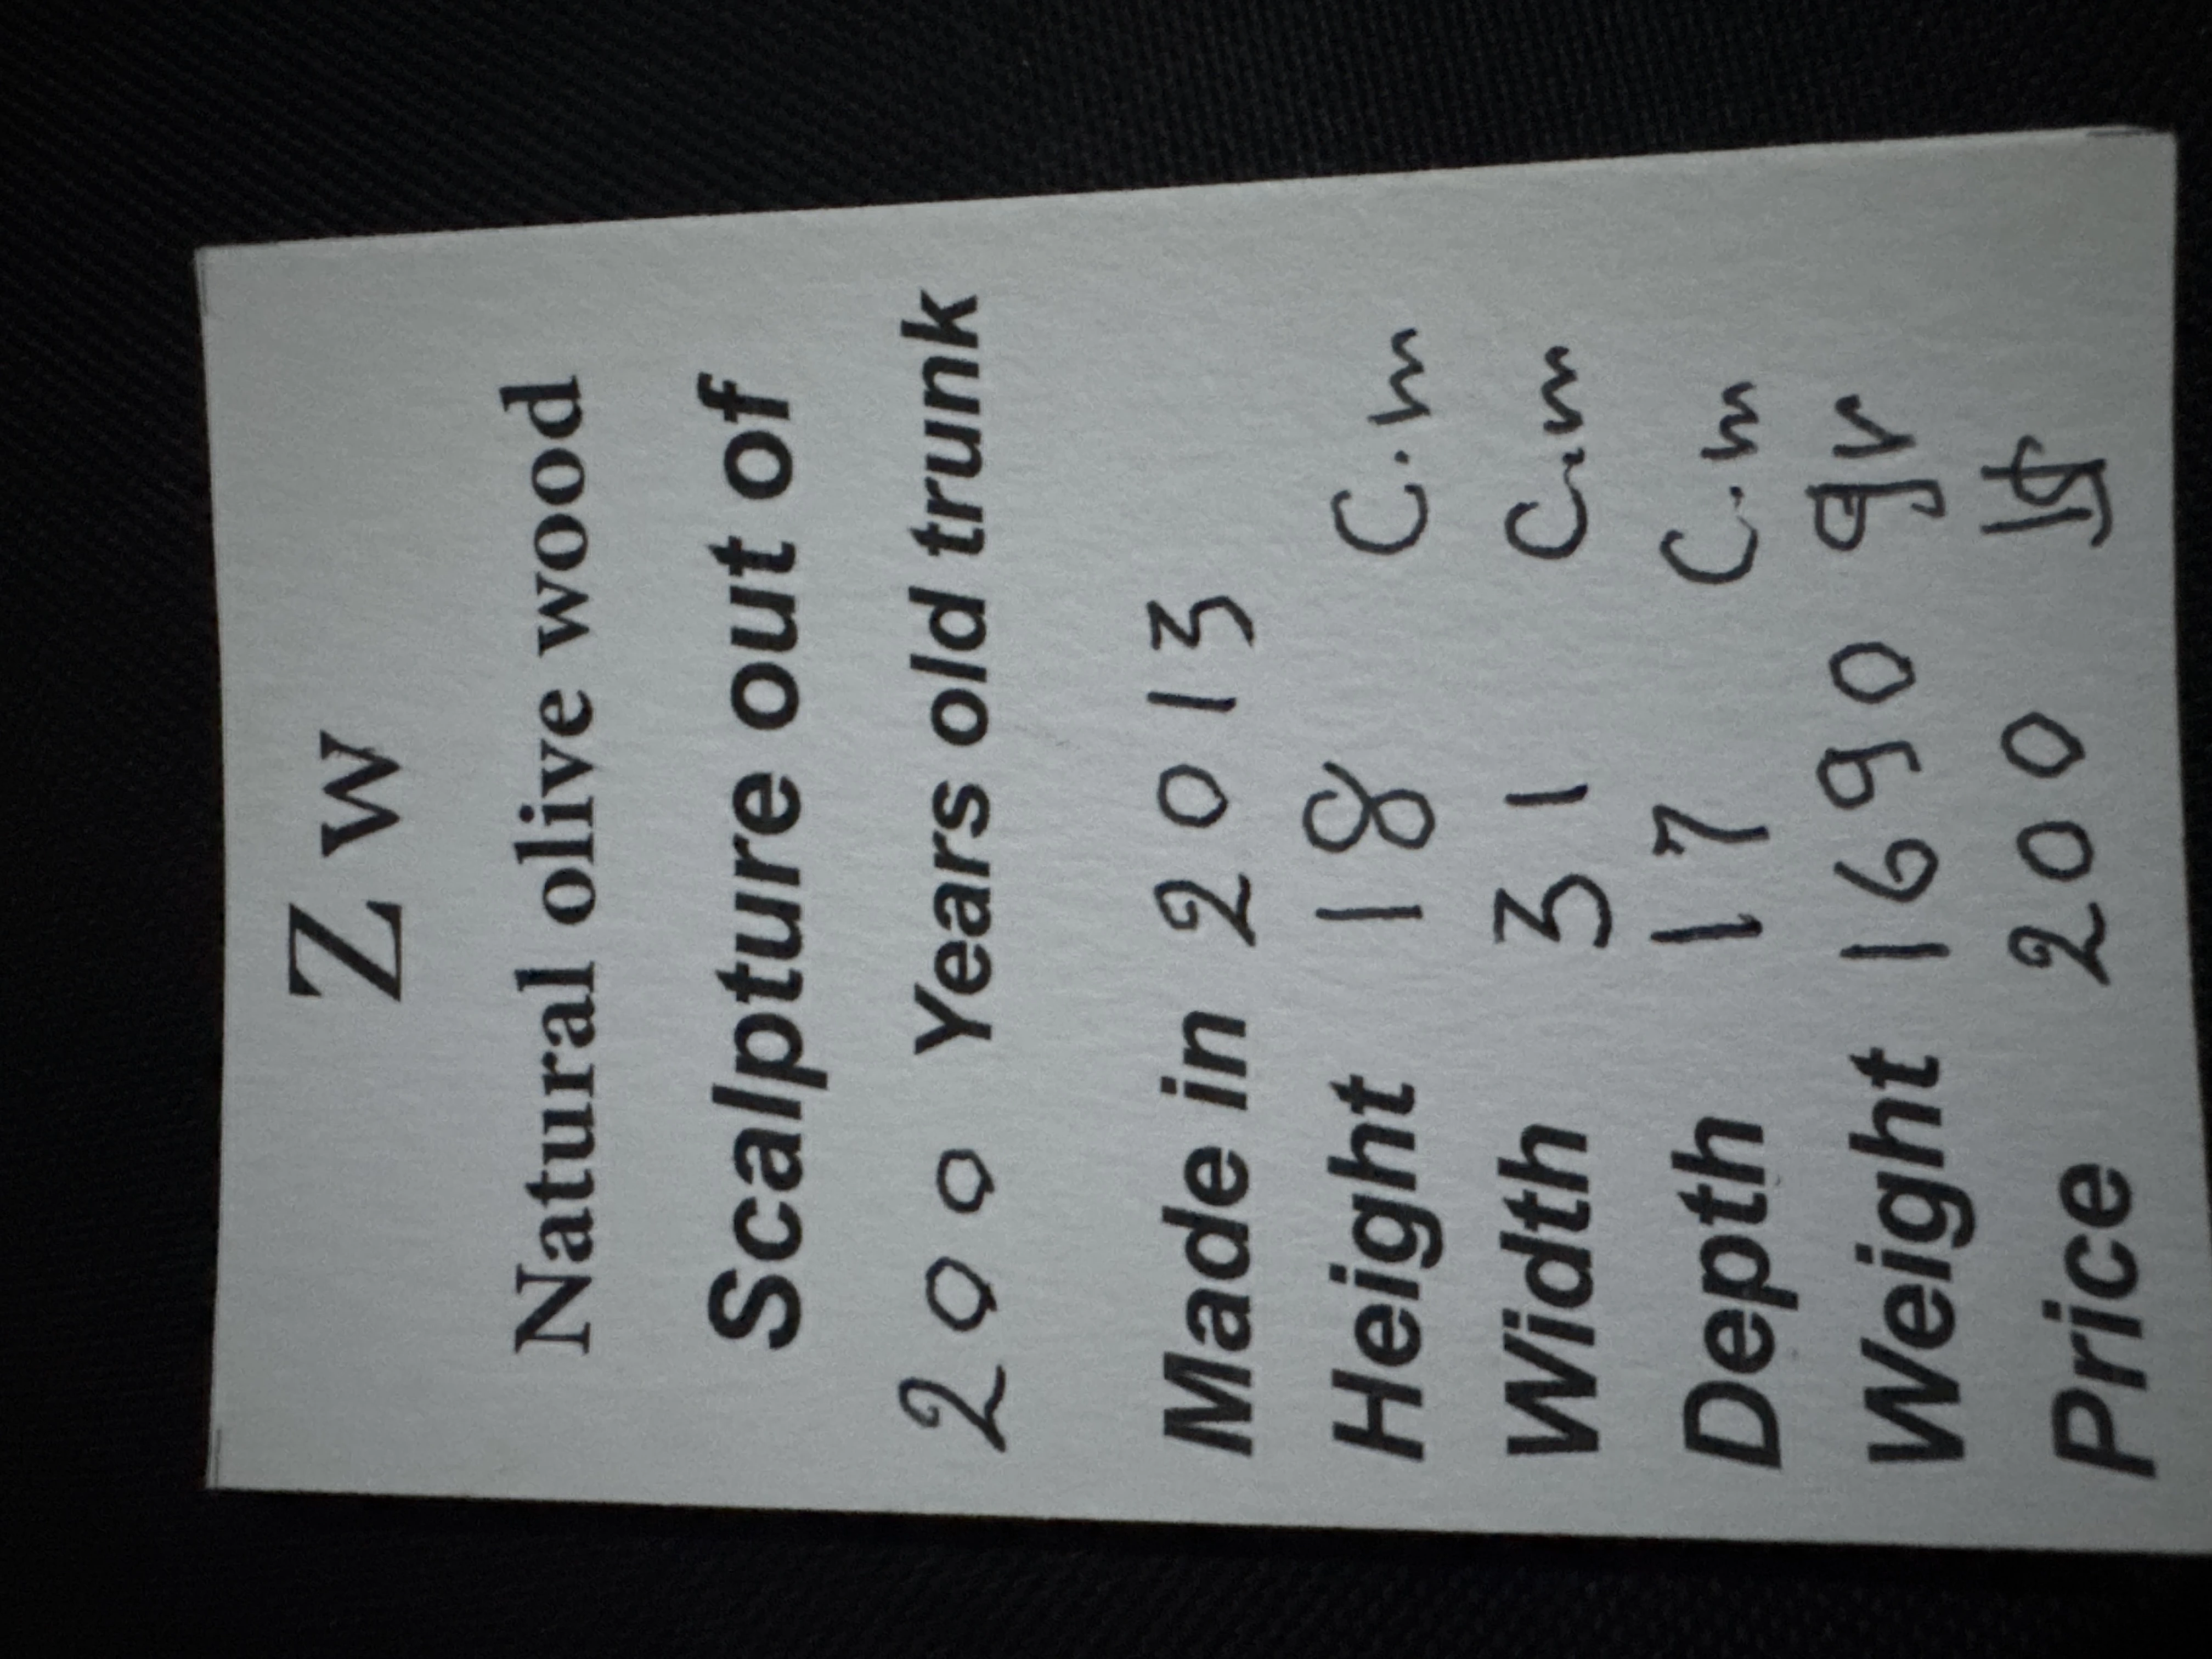 Z w
Natural olive wood
Scalpture out of
200 Years old trunk
Made in 2013
Height 18 C.m
Width 31 C.m
Depth 17 C.m
Weight 1690 gr
Price 200